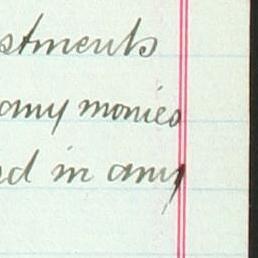 stments
any monies
d in any